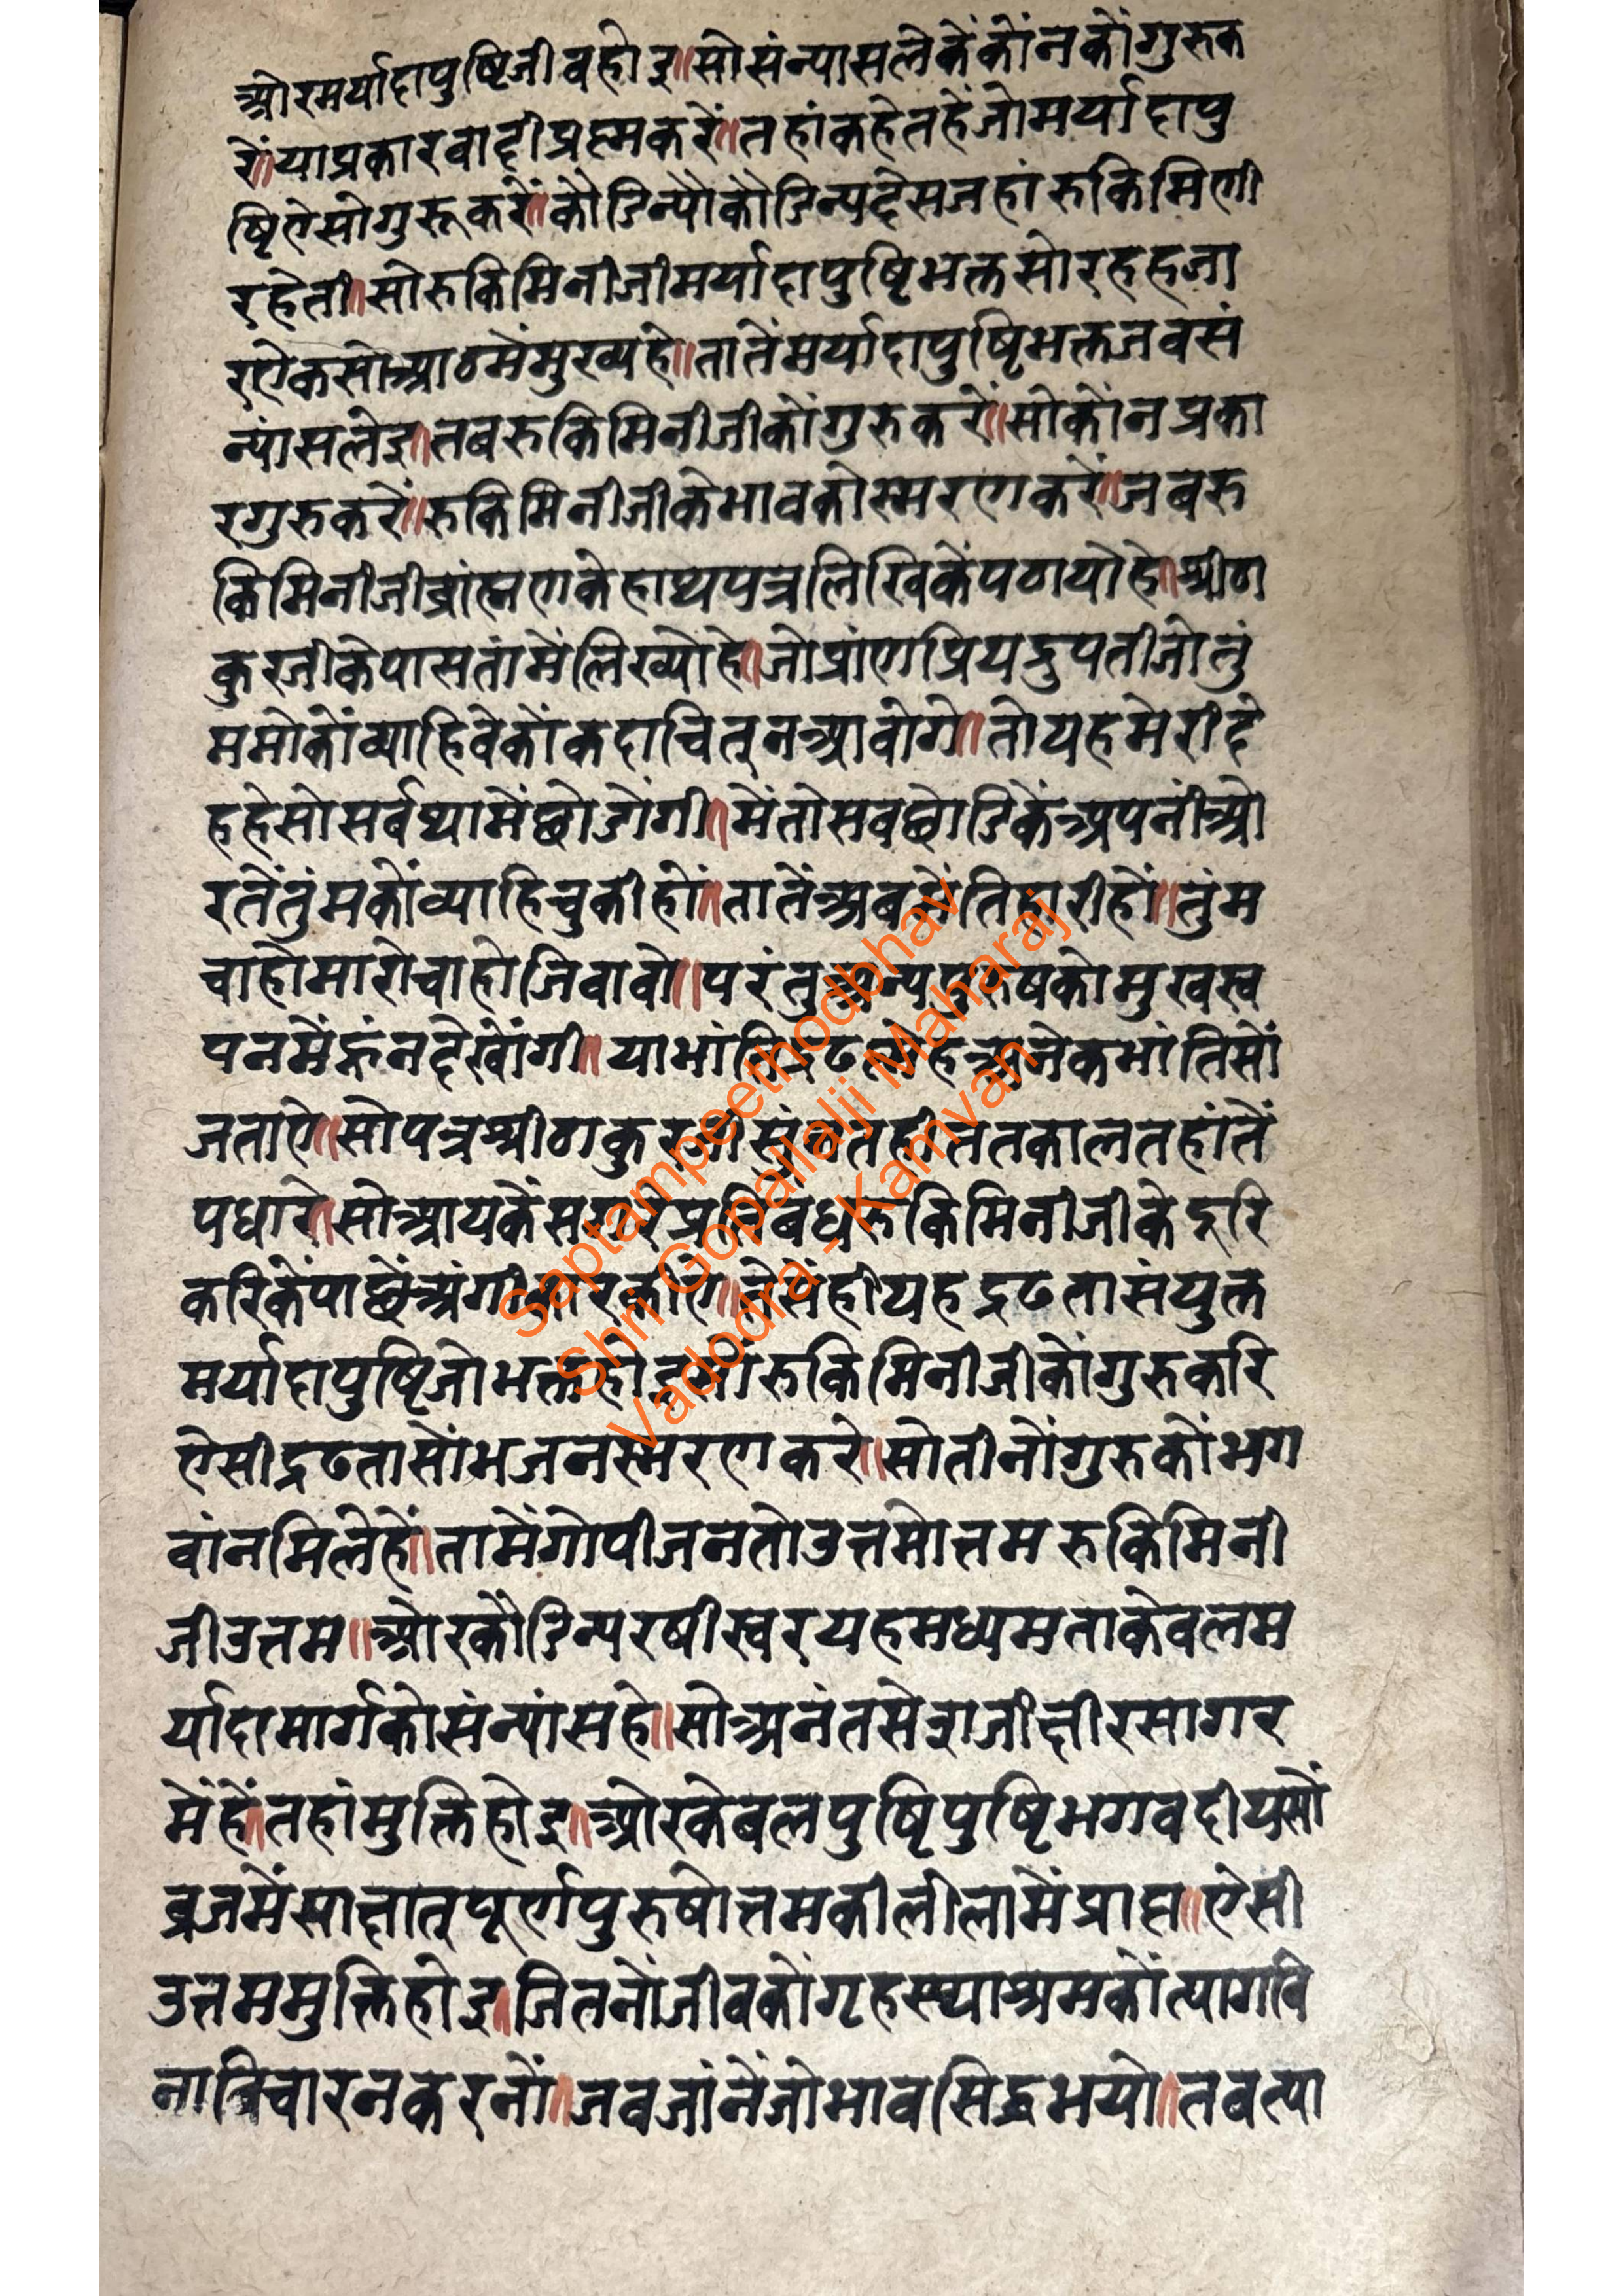 ओरमर्यादापुष्टिजीवहोइ॥सोसंन्यासलेकेंकोंनकोंगुरुक
रें॥याप्रकारवादीप्रह्मकरें॥तहांकहेतहेंजोमर्यादापु
ष्टिऐसोगुरूकरें॥कौडिन्यौकौडिन्यदेसजहांरुकिमिणी
रहेती॥सोरुकिमिनीजीमर्यादापुष्टिभक्तसोरहहजा
रऐकसोआठमेंमुख्यहे॥तातेंमर्यादापुष्टिभक्तजबसं
न्यांसलेइ॥तबरुकिमिनीजीकोंगुरुकरें॥सोकोंनप्रका
रगुरुकरें॥रुकिमिनीजीकेभावकोस्मरणकरें॥जबरु
किमिनीजीब्रांह्मणकेहाथपत्रलिखिकेंपठायोहे॥श्रीठा
कुरजीकेपासतांमेंलिख्योहे॥जोप्रांणप्रियदुपतीजोतुं
ममोकोंव्याहिवेकोंकदाचित्नआवोगे॥तोयहमेरीदे
हहेसोसर्वथामेंछोडोंगी॥मेंतोसबछोडिकेंअपनींओ
रतेंतुंमकोंव्याहिचुकीहों॥तातेंअबमेंतिहारीहों॥तुंम
चाहोमारोचाहोजिवावो॥परंतुअन्यपुरुषकोमुखस्व
पनमेंहूंनदेखोंगी॥याभांतिद्रढस्नेहअनेकभांतिसों
जताऐ॥सोपत्रश्रीठाकुरजीसुंनतहीततकालतहांतें
पधारे॥सोआयकेंसगरेप्रतिबंधरुकिमिनीजीकेदूरि
करिकेंपाछेंअंगीकारकीऐ॥तेसेंहीयहद्रढतासंयुक्त
मर्यादापुष्टिजोभक्तहोइसोरुकिमिनीजीकोंगुरुकरि
ऐसीद्रढतासोंभजनस्मरणकरे॥सोतीनोंगुरुकोंभग
वांनमिलेहें॥तामेंगोपीजनतोउत्तमोत्तमरुकिमिनी
जीउत्तम॥ओरकौडिन्यरषीस्वरयहमध्यमताकेवलम
र्यादामार्गकोसंन्यांसहे॥सोअनंतसेशजीक्षीरसागर
मेंहें॥तहांमुक्तिहोइ॥ओरकेबलपुष्टिपुष्टिभगवदीयसों
व्रजमेंसाक्षात्पूर्णपुरुषोत्तमकीलीलामेंप्राप्त॥ऐसी
उत्तममुक्तिहोइ॥जितनोंजीवकोंगृहस्थाश्रमकोंत्यागबि
नाविचारनकरनों॥जबजांनेंजोभावसिद्धभयो॥तबत्या
Saptampeethodbhav
Shri Gopallalji Maharaj
Vadodra - Kamvan